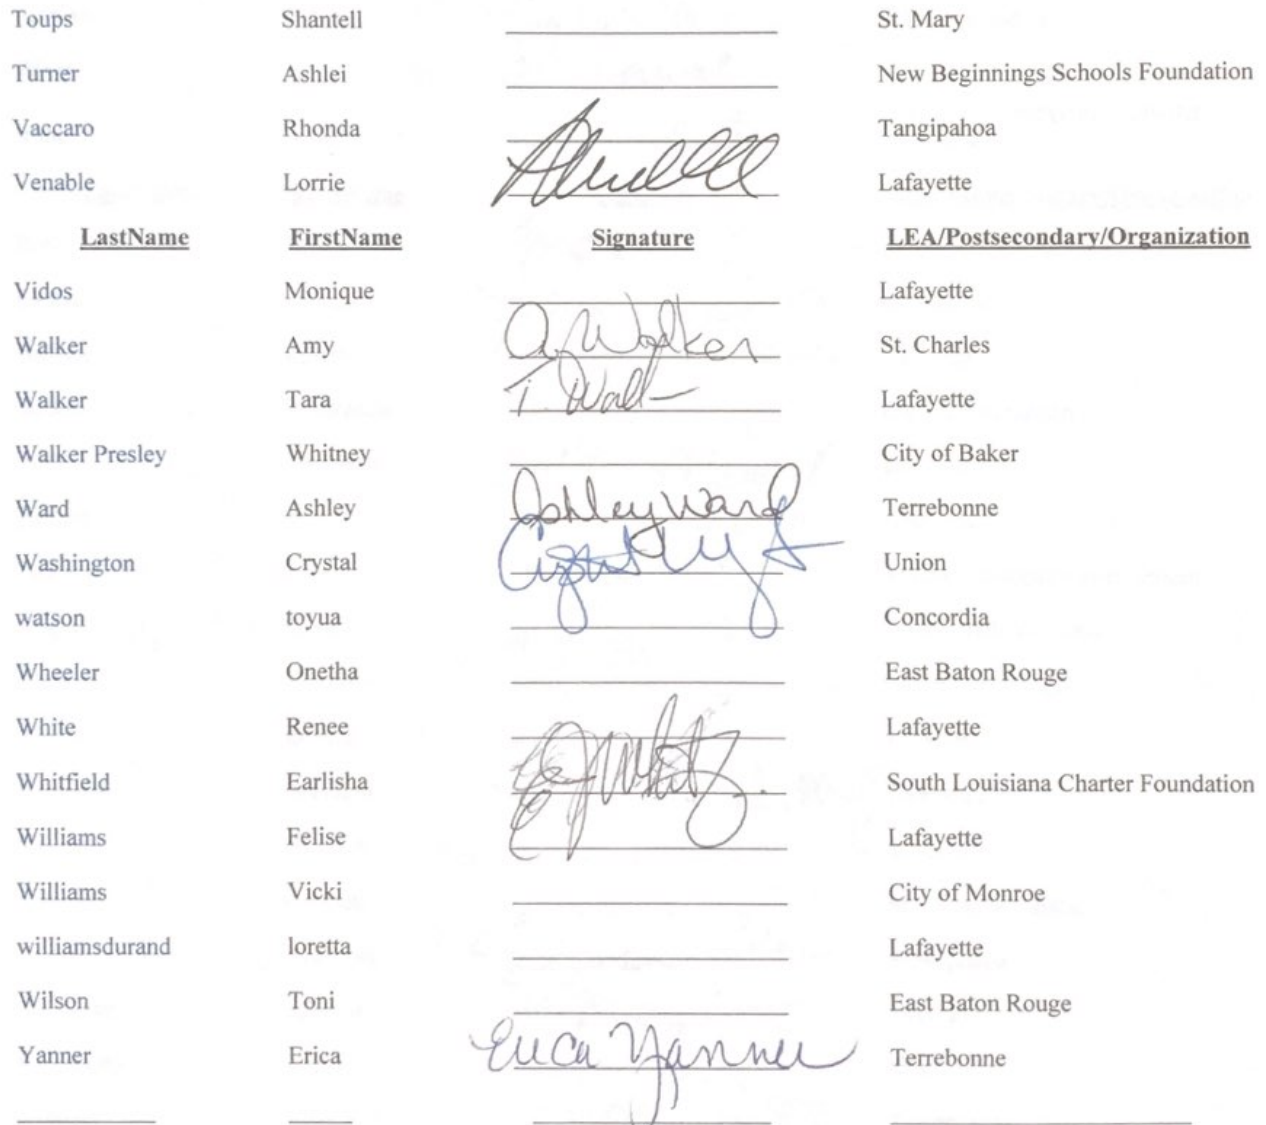 Toups Shantell St. Mary
Turner Ashlei New Beginnings Schools Foundation
Vaccaro Rhonda Tangipahoa
Venable Lorrie Lafayette
LastName FirstName Signature LEA/Postsecondary/Organization
Vidos Monique Lafayette
Walker Amy A. Walker St. Charles
Walker Tara Lafayette
Walker Presley Whitney City of Baker
Ward Ashley Ashley Ward Terrebonne
Washington Crystal Union
watson toyua Concordia
Wheeler Onetha East Baton Rouge
White Renee Lafayette
Whitfield Earlisha South Louisiana Charter Foundation
Williams Felise Lafayette
Williams Vicki City of Monroe
williamsdurand loretta Lafayette
Wilson Toni East Baton Rouge
Yanner Erica Erica Yanner Terrebonne